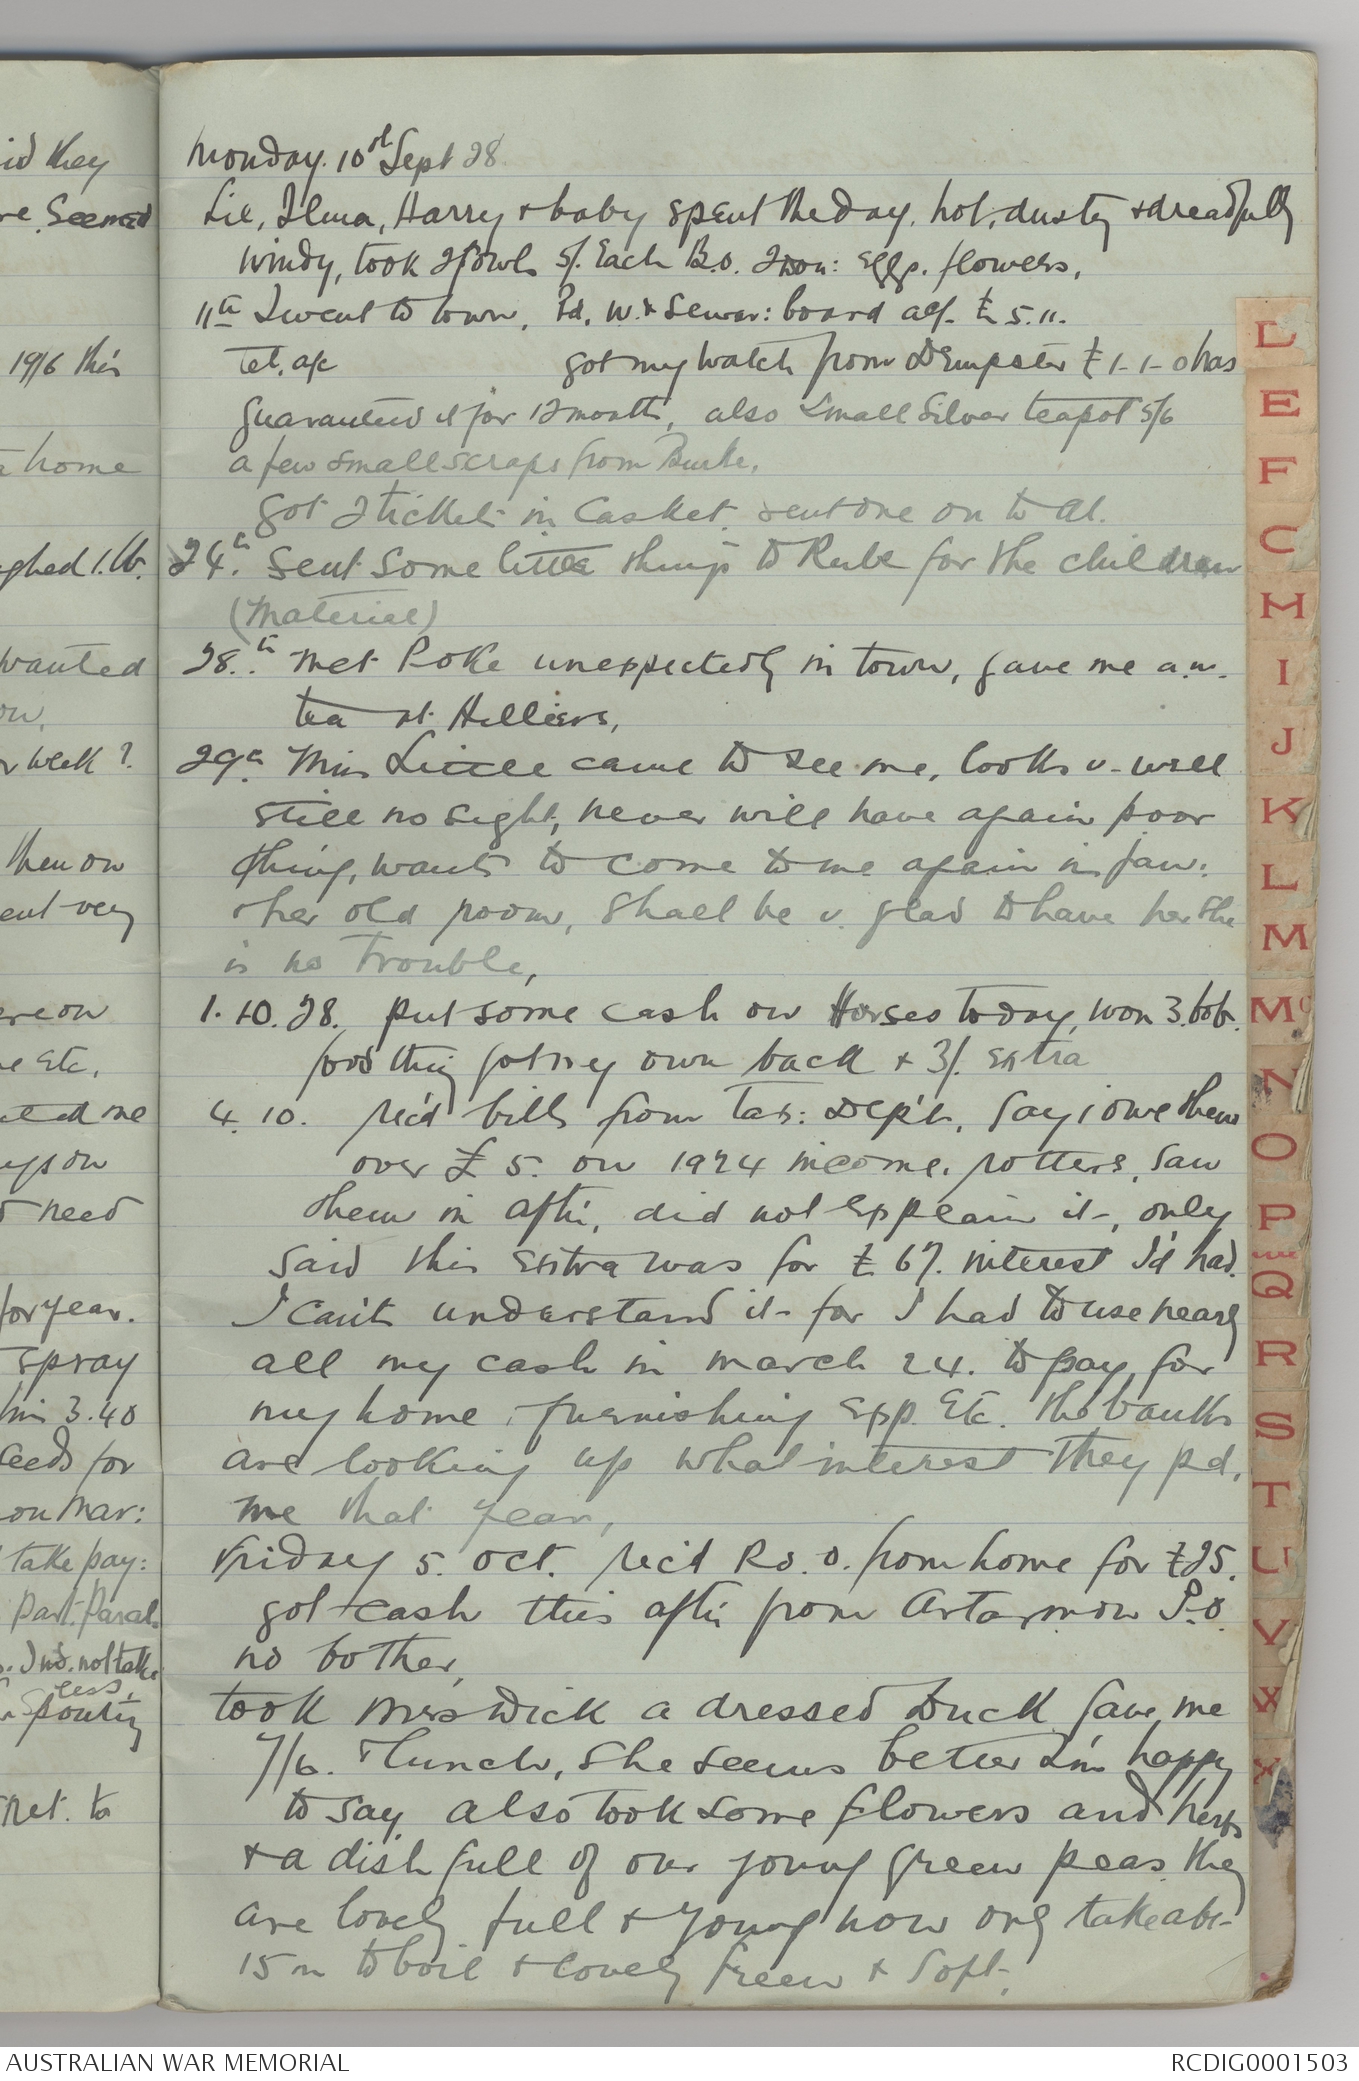 Monday. 10th Sept 28
Lil, Ilma, Harry & baby spent the day, hot, dusty & dreadfully
windy, took 2 fowls 5/. Each B.O. 2 Doz: Eggs. flowers.
11th I went to town. Pd. W. & Sewer: board a/c. £5.11.
Tel. a/c got my watch from Dempster £1-1-0 has
guaranteed it for 12 months, also small Silver teapot 5/6
a few small scraps from Burke.
got 2 tickets in Casket. sent one on to Al.
24th. Sent some little things to Rube for the children
(Material)
28th. met Poke unexpectedly in town, gave me a.m.
tea at Hilliers.
29th. Miss Little came to see me, looks v. well
still no sight, never will have again poor
thing, wants to come to me again in Jan:
her old room, shall be v. glad to have her she
is no trouble,
1.10.28. put some cash on Horses today, won 3. bob.
good thing got my own back & 3/. extra
4.10. rec'd bills from Tax: Dep't. Say i owe them
over £5. on 1924 income. rotters. saw
them in aft'n, did not explain it, only
said this extra was for £67. interest I'd had.
I can't understand it - for I had to use nearly
all my cash in March 24. to pay for
my home, furnishing exp. Etc. the banks
are looking up what interest they pd.
me that year,
Friday 5. Oct. rec'd P.O.O. from home for £25.
got cash this aft'n from Artarmon P.O.
no bother,
took Mrs Dick a dressed Duck gave me
7/6. & lunch, she seems better I'm happy
to say also took some flowers and herbs
& a dish full of our young green peas. they
are lovely full & young now only take abt -
15 m to boil & lovely green & soft.
id they
re. Seemed
19/6 this
home
ghed 1. lb.
wanted
week?
then on
ent very
ere on
e Etc,
ted me
ys on
need
for year.
spray
this 3.40
seeds for
on Mar:
take pay:
less,
net. to
L
E
F
C
M
I
J
K
L
M
Mc
N
O
P
Q
R
S
T
U
V
X
AUSTRALIAN WAR MEMORIAL
RCDIG0001503